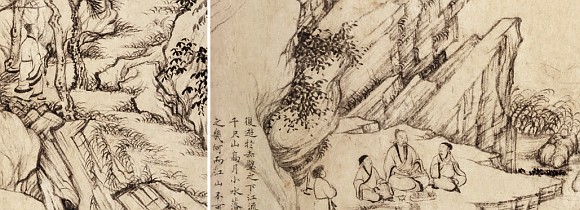 復遊於赤壁之下江流
千尺山高月小水落
之幾何而江山不可